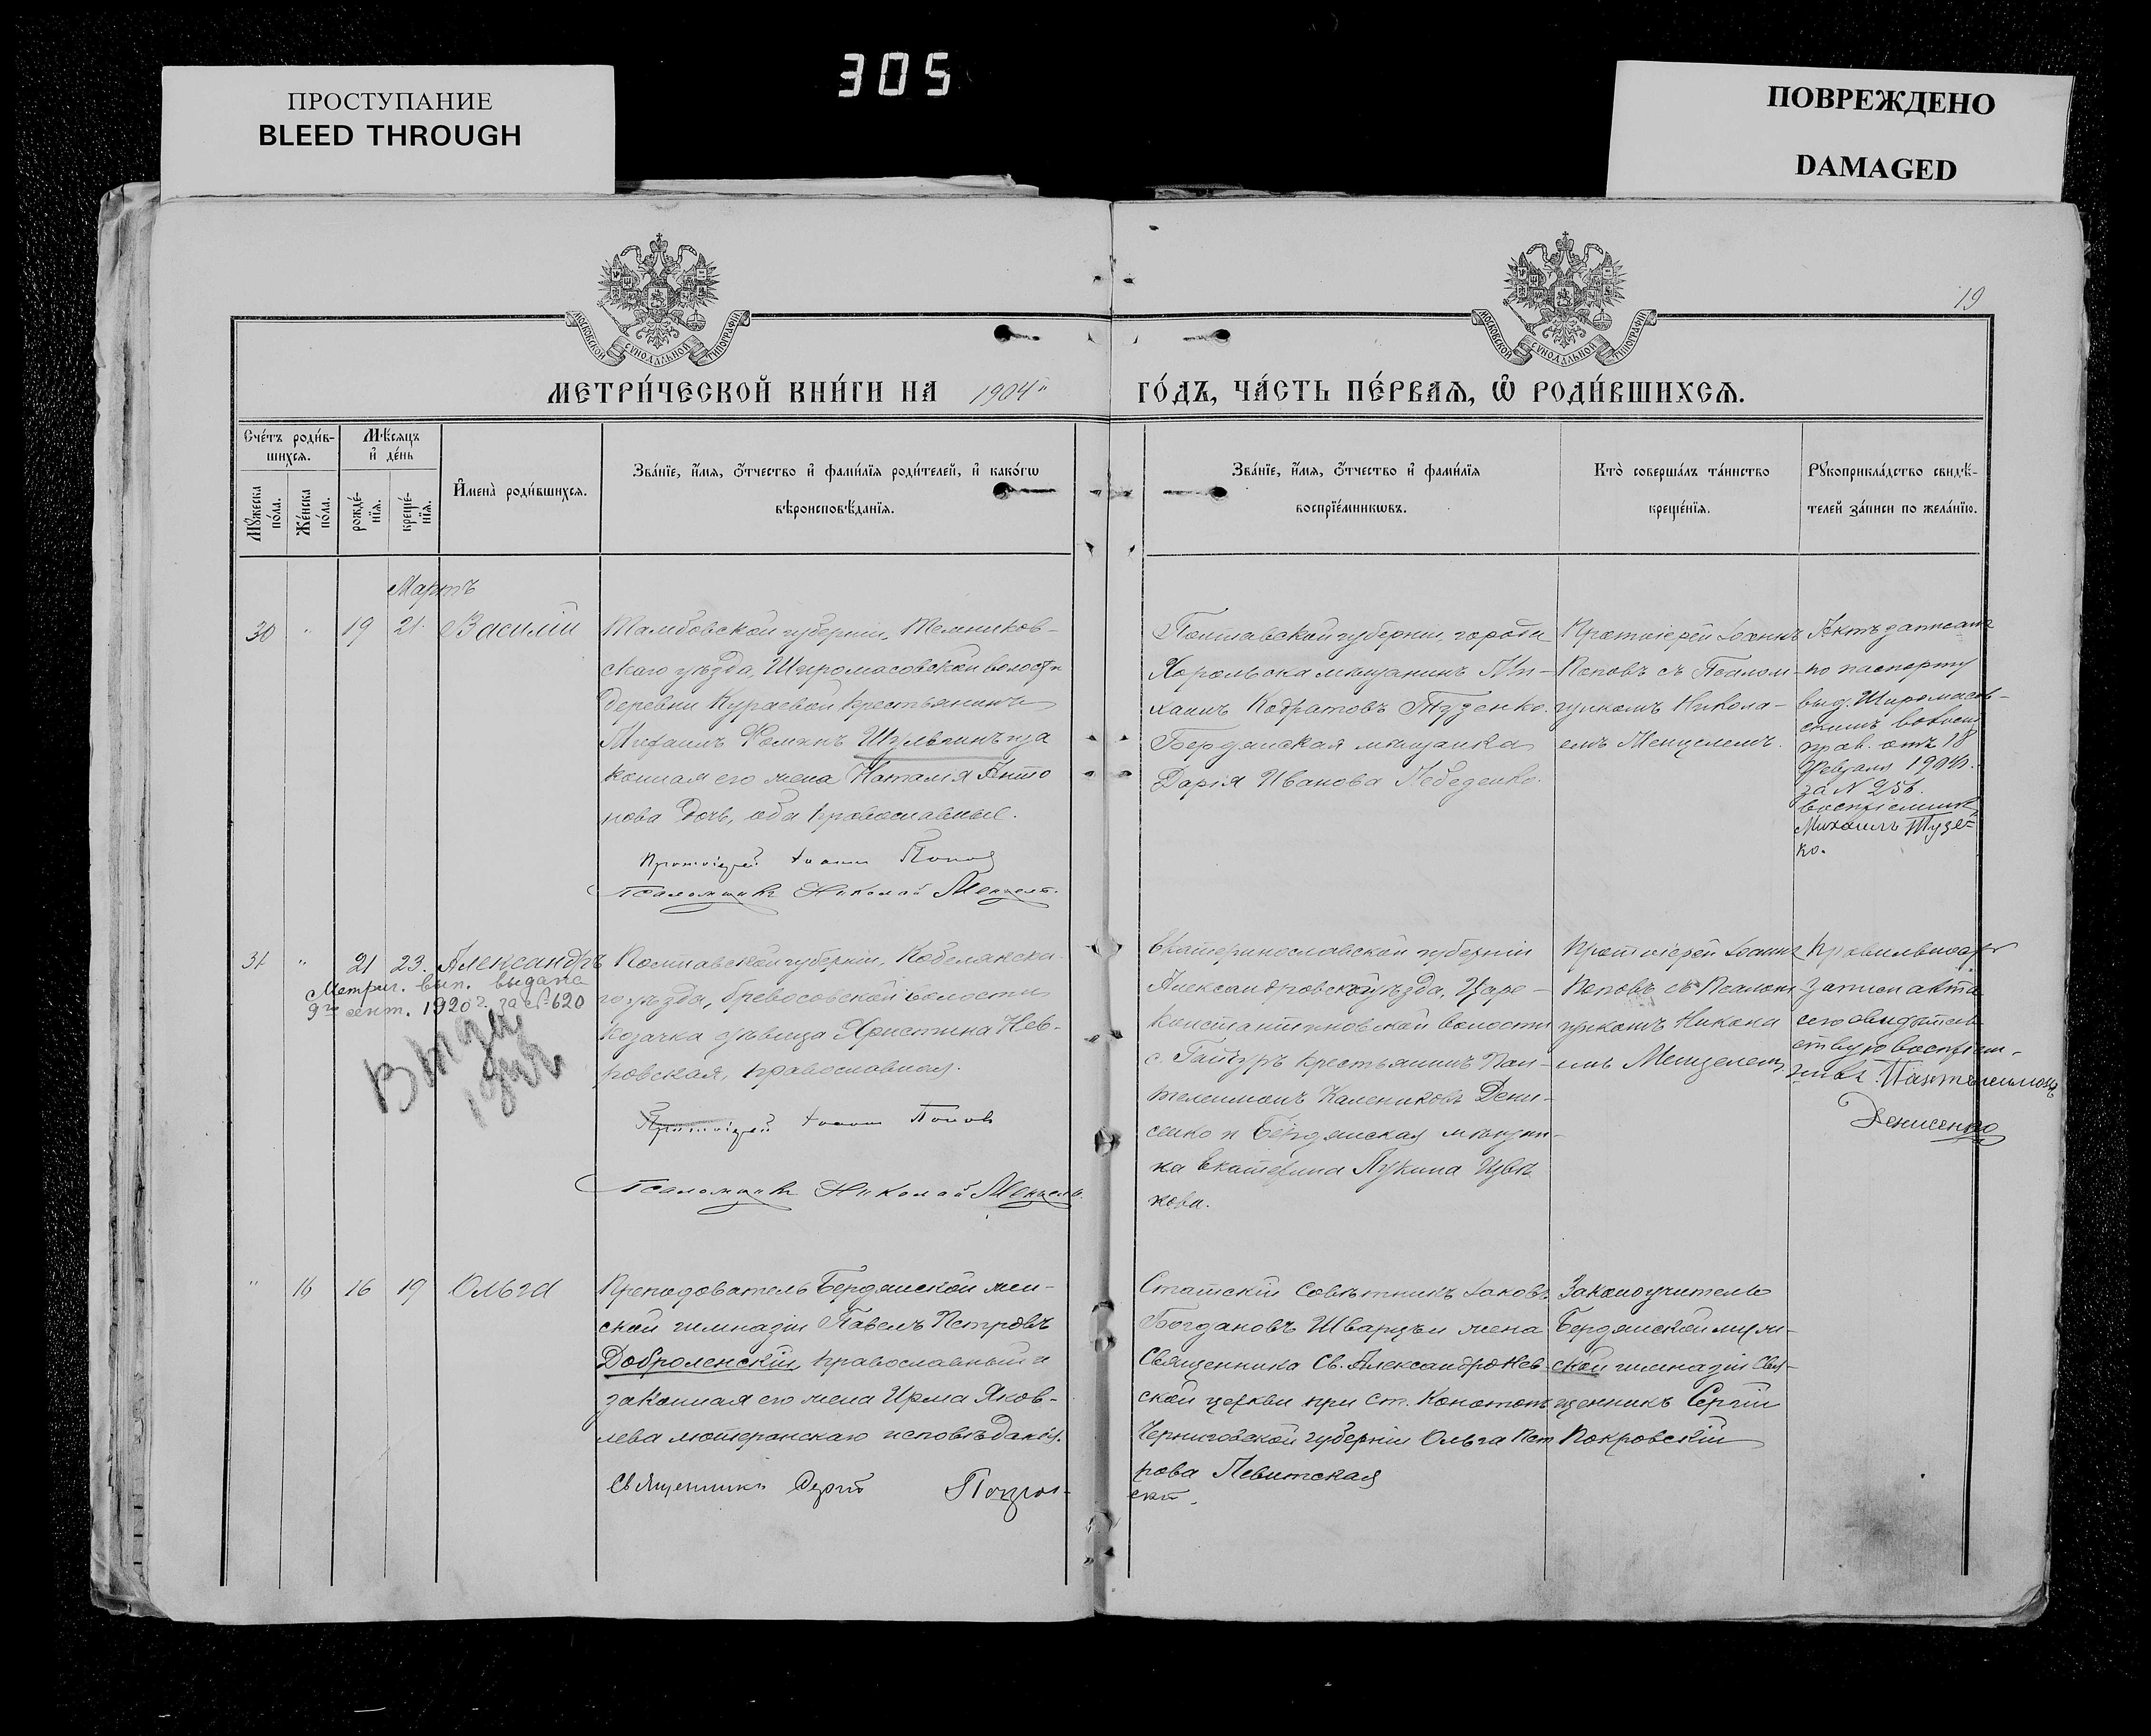 305
ПРОСТУПАНИЕ
BLEED THROUGH
ПОВРЕЖДЕНО
DAMAGED
19
МОСКОВСКОЙ СУНОДАЛЬНОЙ ТИПОГРАФІИ
МОСКОВСКОЙ СУНОДАЛЬНОЙ ТИПОГРАФІИ
МЕТРИ́ЧЕСКОЙ КНИ́ГИ НА 1904 ГО́ДЪ, ЧА́СТЬ ПЕ́РВАѦ, Ѡ РОДИ́ВШИХСѦ.
Сче́тъ роди́в-
шихсѧ.
Мѣсѧцъ
и де́нь
Мꙋжеска
по́ла.
Же́нска
по́ла.
рожде́-
нїѧ.
креще́-
нїѧ.
Имена̀ роди́вшихсѧ.
Зва́нїе, и́мѧ, ѻтчество и фами́лїѧ роди́телей, и како́гѡ
вѣроисповѣ́данїѧ.
Зва́нїе, и́мѧ, ѻтчество и фами́лїѧ
воспрїе́мникѡвъ.
Кто̀ соверша́лъ та́инство
креще́нїѧ.
Рꙋкоприкла́дство свидѣ́-
телей за́писи по жела́нїю.
Мартъ
30 " 19 21. Василій
Тамбовской губерніи, Темников-
скаго уѣзда, Широмасовской волости
деревни Кураевой крестьянинъ
Михаилъ Фоминъ Шульпинъ и за
конная его жена Наталія Анто
нова дочь, оба православные.
Протоіерей Іоаннъ Поповъ
Псаломщикъ Николай Менцель.
Полтавской губерніи города
Хорольска мѣщанинъ Ми-
хаилъ Кодратовъ Тузенко.
Бердянская мѣщанка
Дарія Иванова Лебеденко.
Протоіерей Іоаннъ
Поповъ съ Псалом-
щикомъ Никола-
емъ Менцелемъ.
Актъ записанъ
по паспорту
выд. Широмасов-
скимъ волост
прав. отъ 18
Февраля 1904.
за N 256.
воспріемникъ
Михаилъ Тузен-
ко.
31 " 21 23. Александръ
Метрич. вып. выдана
9го сент. 1920 г. за № 620
Полтавской губерніи, Кобелякска
го уѣзда, Бреусовской волости
козачка дѣвица Христина Нев-
ровская, православная.
Протоіерей Іоаннъ Поповъ
Псаломщикъ Николай Менцель.
Екатеринославской губерніи
Александровскаго уѣзда, Царе-
константиновской волости
с. Гайчуръ крестьянинъ Пан-
телеимонъ Калениковъ Дени-
сенко и Бердянская мѣщан-
ка Екатерина Лукина Цвѣт
кова.
Протоіерей Іоаннъ
Поповъ съ Псалом
щикомъ Никола
емъ Менцелемъ
Правильность
записи акта
сего свидѣтель
ствую воспріем-
никъ: Пантелеимонъ
Денисенко
" 16 16 19 Ольга
Преподователь Бердянской жен-
ской гимназіи Павелъ Петровъ
Доброленскій, православный и
законная его жена Ирма Яков-
лева лютеранскаго исповѣданія.
Священникъ Сергій Покров-
скій.
Статскій Совѣтникъ Іаковъ
Богдановъ Шварцъ и жена
Священника Св. Александро Нев-
ской церкви при ст. Конотопъ
Черниговской губерніи Ольга Пет
рова Левитская
Законоучитель
Бердянской муж-
ской гимназіи Свя-
щенникъ Сергій
Покровскій